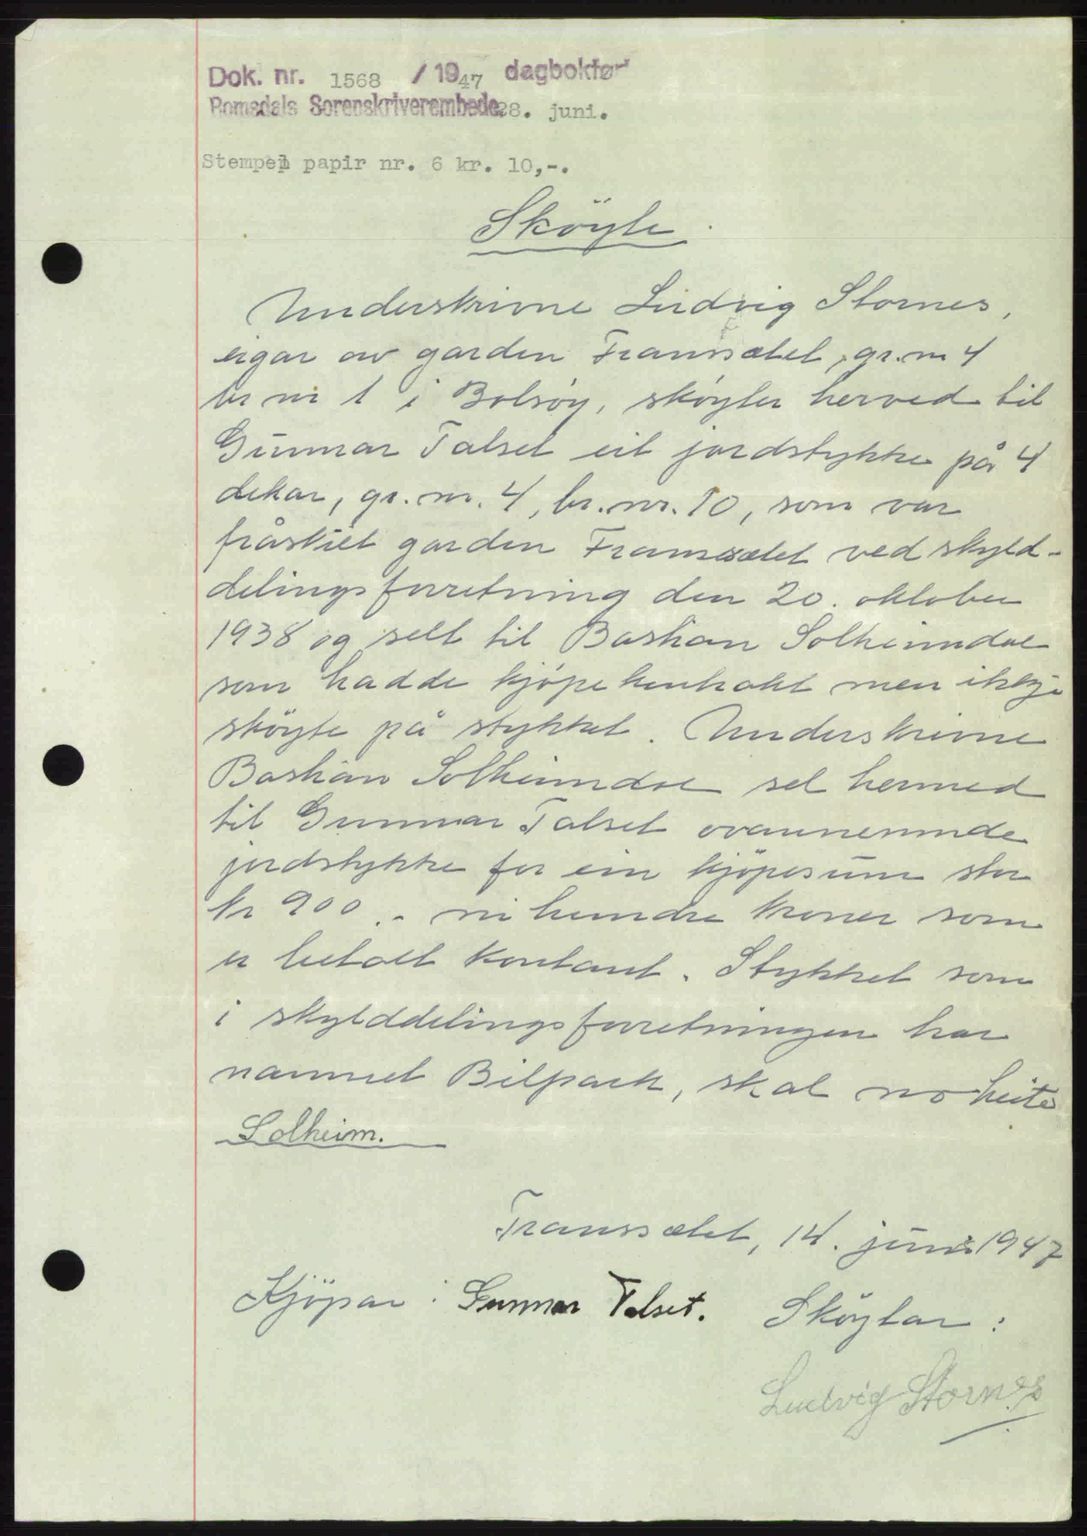 Dok. nr. 1568 / 1947 dagbokført
Romsdals Sorenskriverembede 28. juni.
Stempel papir nr. 6 kr. 10,-.
Sköyte.
Underskrivne Ludvig Stornes,
eigar av garden Franssætet, gr.nr 4
br nr 1 i Bolsøy, skøyter herved til
Gunnar Talset eit jordstykke på 4
dekar, gr. nr. 4, br. nr. 10, som var
fråskilt garden Franssætet ved skyld-
delingsforretning den 20. oktober
1938 og selt til Bastian Solheimdal
som hadde kjøpekontrakt men ikkje
skøyte på stykket. Underskrivne
Bastian Solheimdal sel hermed
til Gunnar Talset ovannemnde
jordstykke for ein kjöpesum stor
kr 900.- ni hundre kroner som
er betalt kontant. Stykket som
i skylddelingsforretningen har
namnet Bilpark, skal no heite
Solheim.
Franssætet, 14. juni 1947
Kjöpar: Gunnar Talset. Skøytar:
Ludvig Stornes